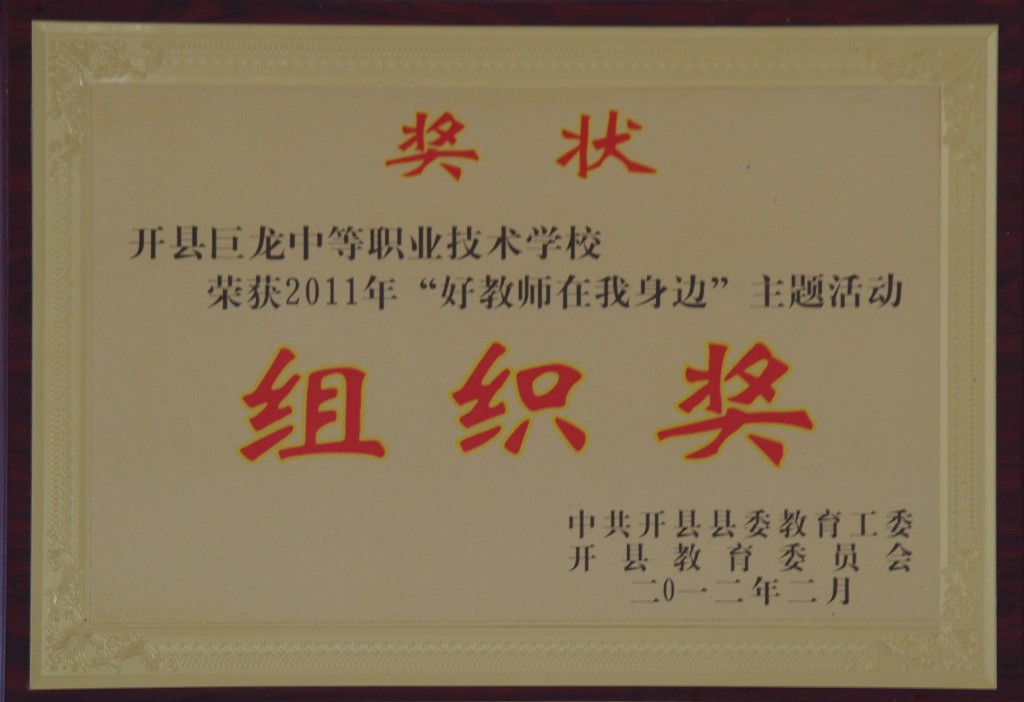 奖状
开县巨龙中等职业技术学校
荣获2011年“好教师在我身边”主题活动
组织奖
中共开县县委教育工委
开县教育委员会
二0一二年二月